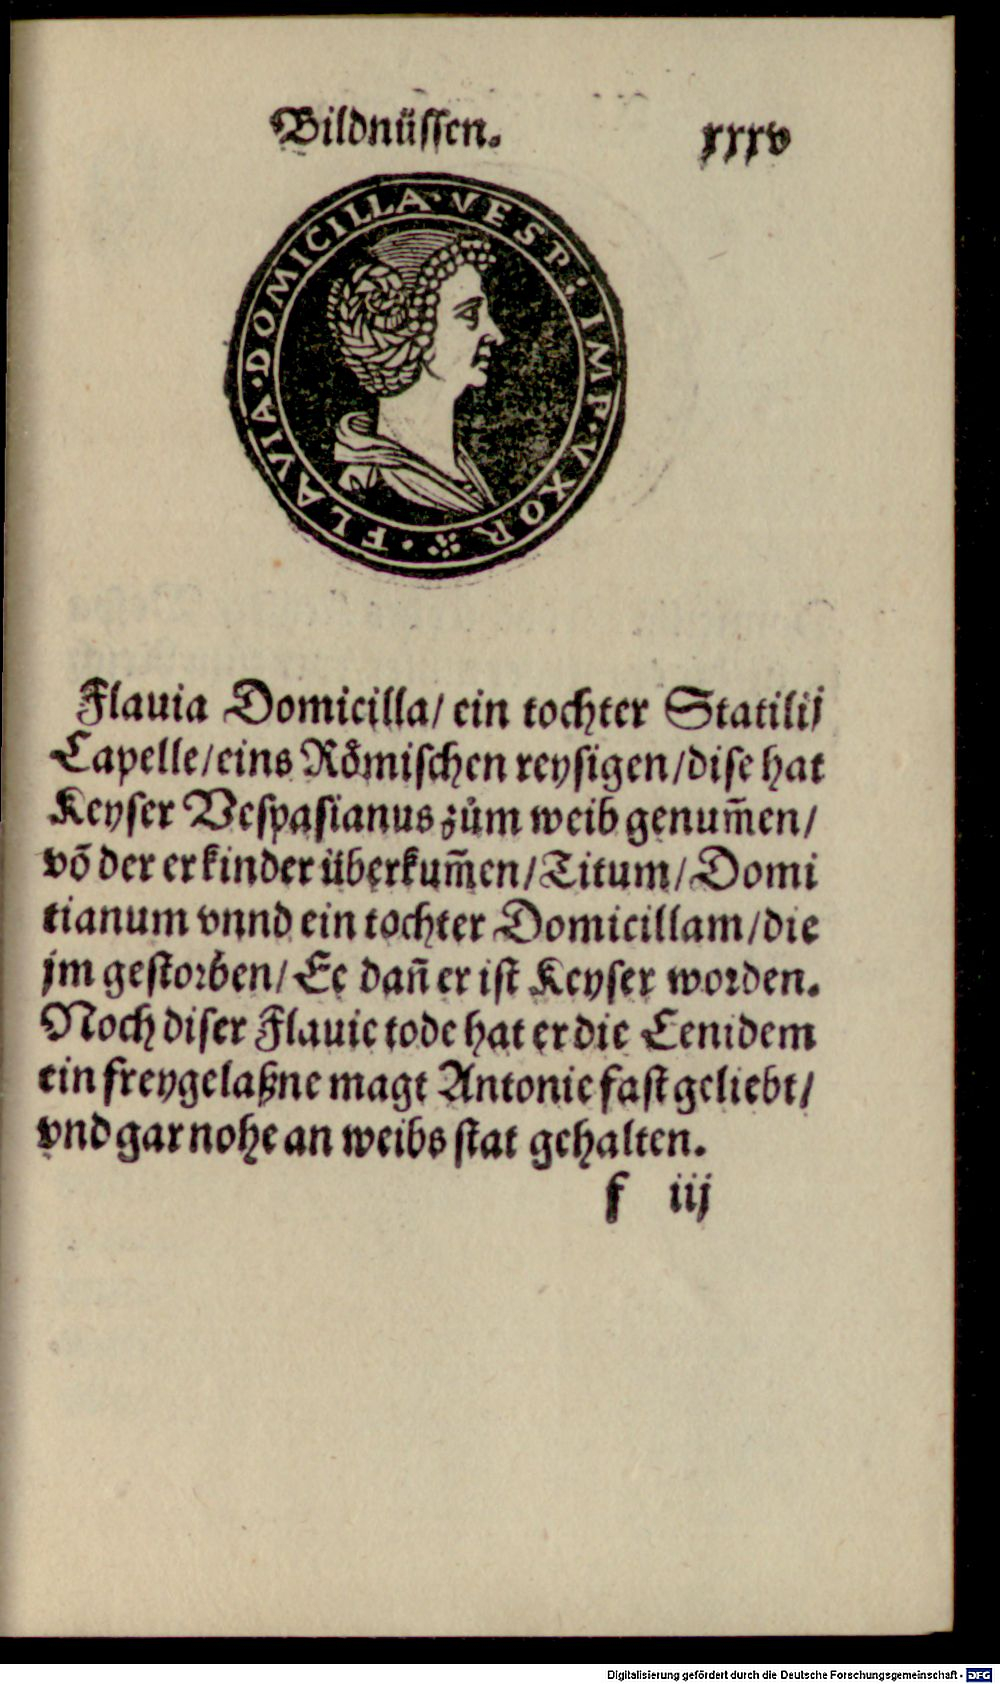 Bildnüssen. xxxv
FLAVIA·DOMICILLA·VESP: IMP·VXOR
Flauia Domicilla/ ein tochter Statilij
Capelle/eins Rőmischen reysigen/dise hat
Keyser Vespasianus zům weib genum̃en/
võ der er kinder überkum̃en/Titum/Domi
tianum vnnd ein tochter Domicillam/die
jm gestorben/ Ee dañ er ist Keyser worden.
Noch diser Flauie tode hat er die Cenidem
ein freygelaßne magt Antonie fast geliebt/
vnd gar nohe an weibs stat gehalten.
f iij
Digitalisierung gefördert durch die Deutsche Forschungsgemeinschaft - DFG